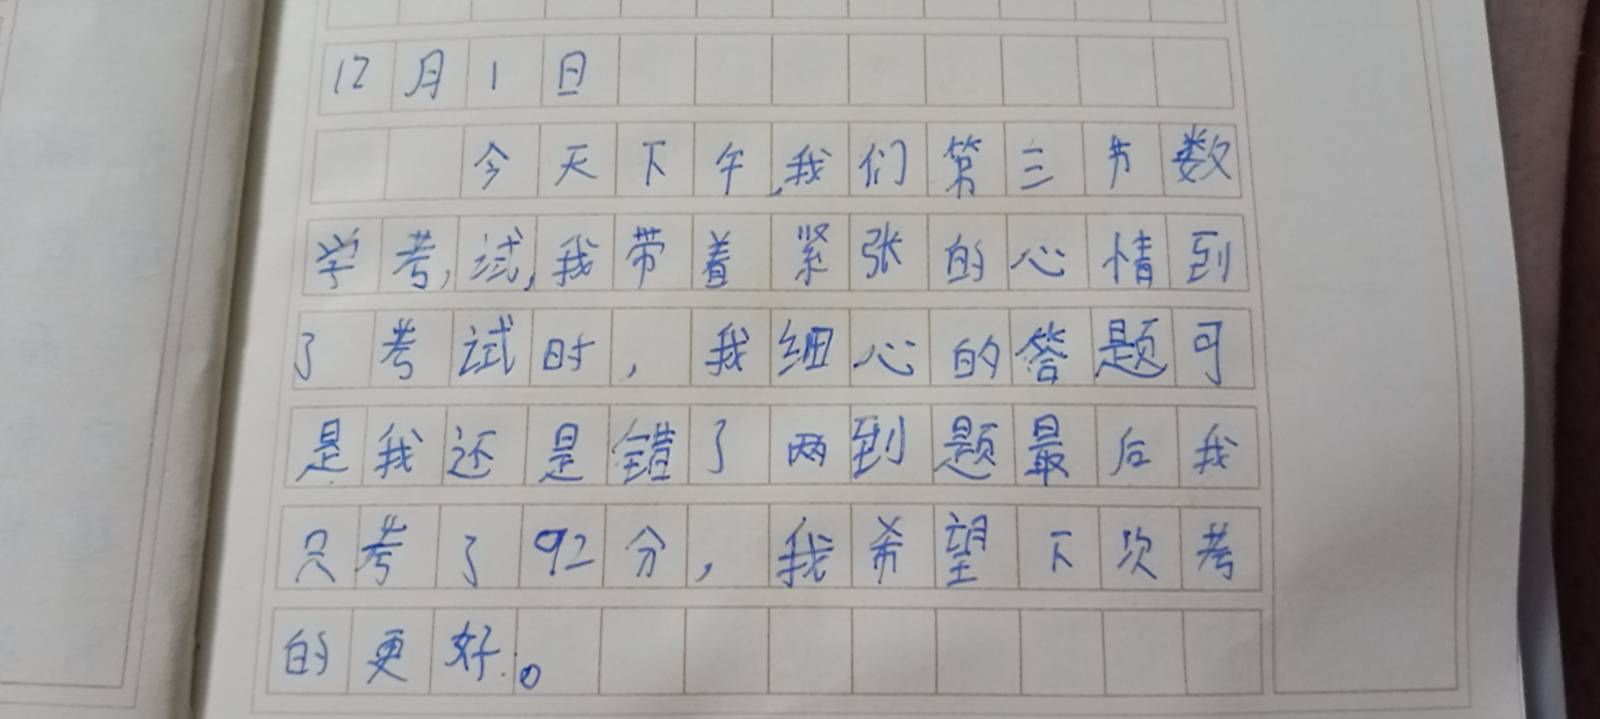 12月1日
今天下午,我们第三节数
学考,试,我带着紧张的心情到
了考试时,我细心的答题可
是我还是错了两到题最后我
只考了92分,我希望下次考
的更好。